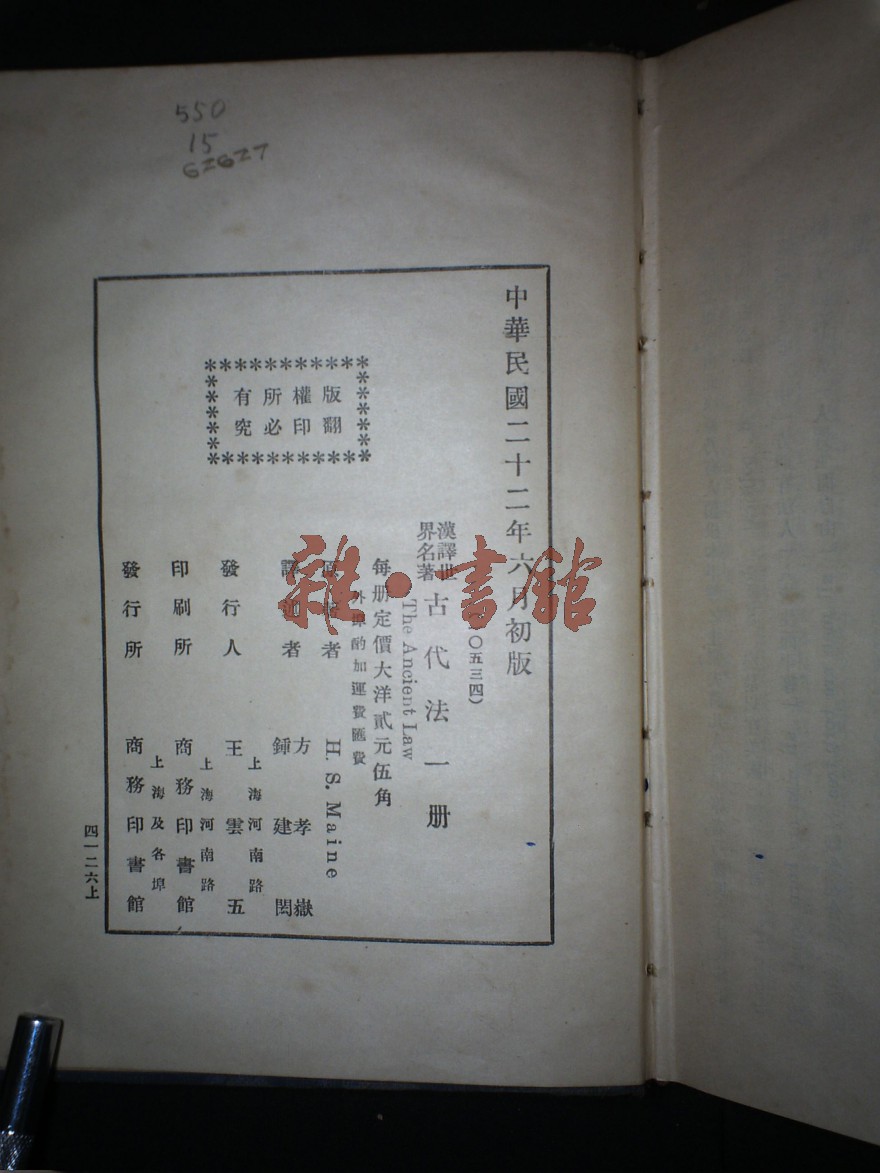 550
15
62627
中華民國二十二年六月初版
〇五三四)
漢譯世
界名著
古代法一册
The Ancient Law
每册定價大洋貳元伍角
外埠酌加運費匯費
版權所有
翻印必究
者
H. S. Maine
譯述者
方孝嶽
鍾建閎
發行人
上海河南路
王雲五
印刷所
上海河南路
商務印書館
發行所
上海及各埠
商務印書館
四一二六上
雜·書館